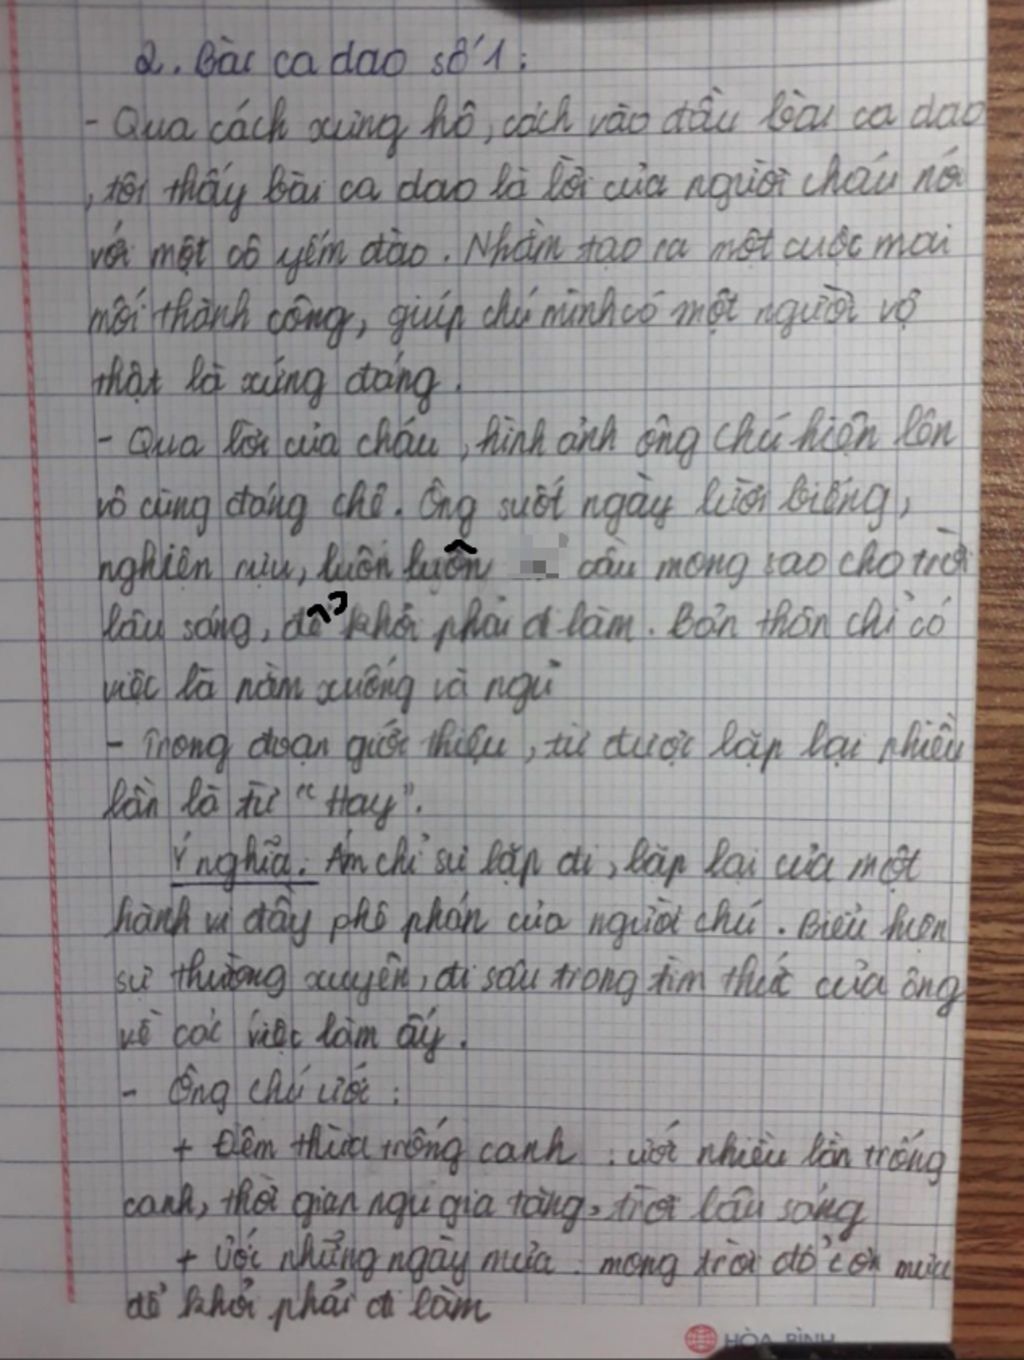 2. Bài ca dao số 1:
- Qua cách xưng hô, cách vào đầu bài ca dao
, tôi thấy bài ca dao là lời của người cháu nói
với một cô yếm đào. Nhằm tạo ra một cuộc mai
mối thành công, giúp chú mình có một người vợ
thật là xứng đáng.
- Qua lời của cháu, hình ảnh ông chú hiện lên
vô cùng đáng chê. Ông suốt ngày lười biếng,
nghiện rượu, luôn luôn cầu mong sao cho trời
lâu sáng, để khỏi phải đi làm. Bản thân chỉ có
việc là nằm xuống và ngủ
- Trong đoạn giới thiệu, từ được lặp lại nhiều
lần là từ "Hay".
Ý nghĩa: Ám chỉ sự lặp đi, lặp lại của một
hành vi đầy phê phán của người chú. Biểu hiện
sự thường xuyên, đi sâu trong tìm thức của ông
về các việc làm ấy.
- Ông chú ước:
+ Đêm thừa trống canh: ước nhiều lần trống
canh, thời gian ngủ gia tăng, trời lâu sáng
+ Ước những ngày mưa: mong trời đổ cơn mưa
để khỏi phải đi làm
HÒA BÌNH